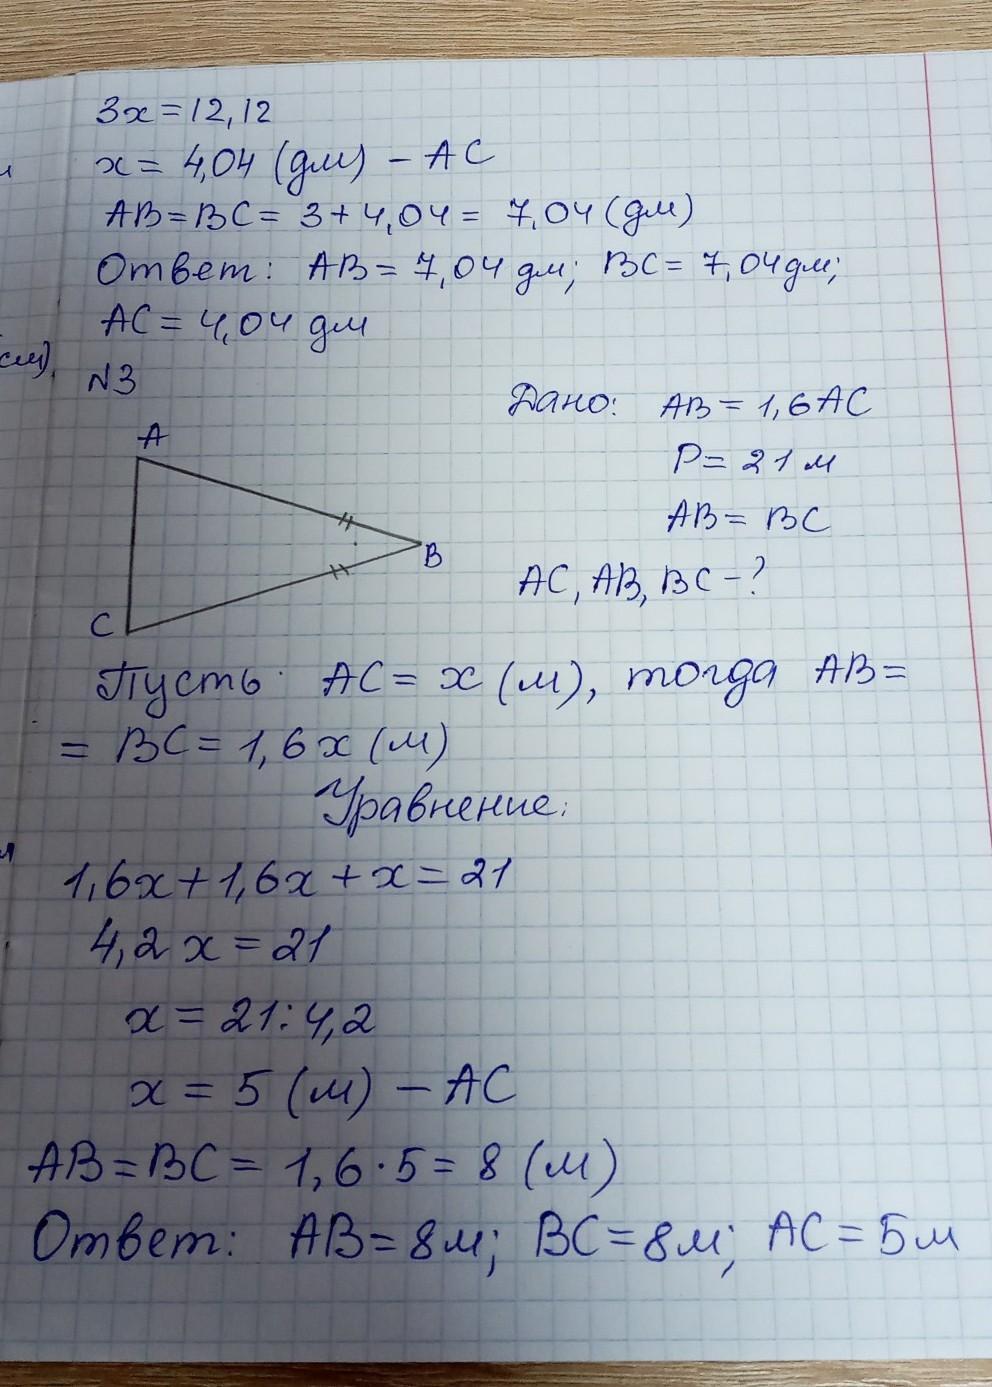 3x = 12,12
x = 4,04 (дм) – AC
AB = BC = 3 + 4,04 = 7,04 (дм)
Ответ: AB = 7,04 дм; BC = 7,04 дм;
AC = 4,04 дм
см).
N3
Дано: AB = 1,6 AC
P = 21 м
AB = BC
AC, AB, BC – ?
A
B
C
Пусть AC = x (м), тогда AB =
= BC = 1,6x (м)
Уравнение:
1,6x + 1,6x + x = 21
4,2x = 21
x = 21 : 4,2
x = 5 (м) – AC
AB = BC = 1,6 · 5 = 8 (м)
Ответ: AB = 8м; BC = 8м; AC = 5м